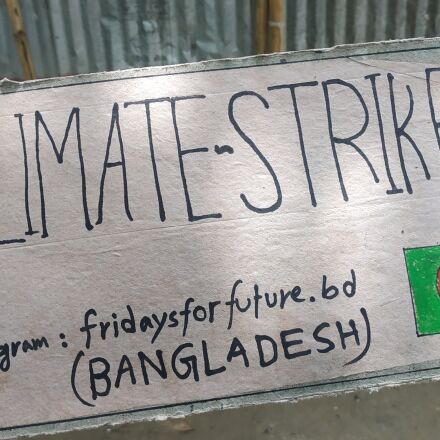 LIMATE-STRIKE
gram : fridaysforfuture.bd
(BANGLADESH)